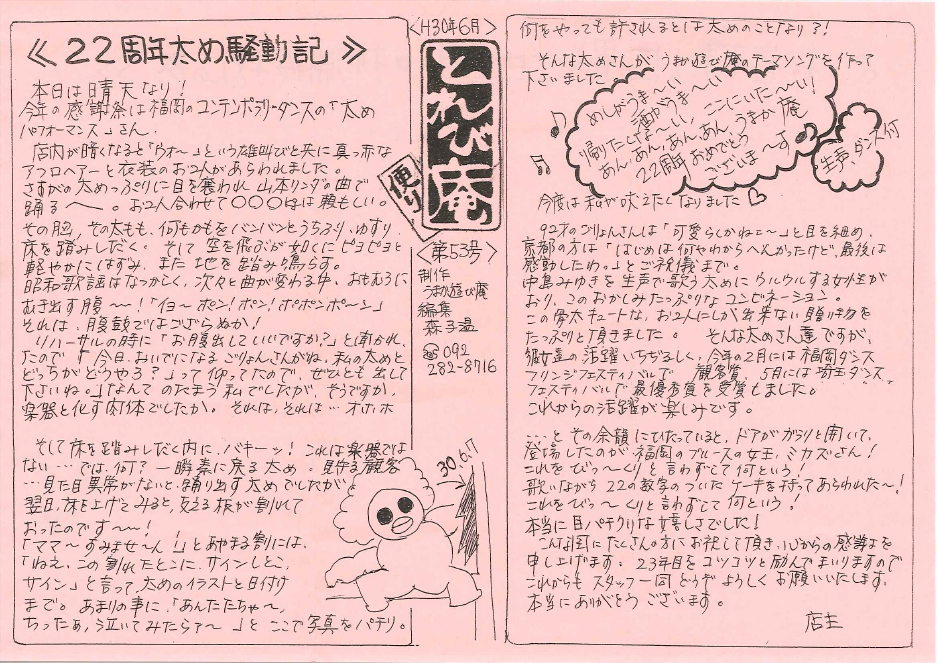 ≪22周年太め騒動記≫
本日は晴天なり！
今年の感謝祭は福岡のコンテンポラリーダンスの「太め
パフォーマンス」さん。
店内が暗くなると「ウォ〜」という雄叫びと共に真っ赤な
アフロヘアーと衣装のお2人があらわれました。
さすがの太めっぷりに目を奪われ山本リンダの曲で
踊る〜。お2人合わせて〇〇〇kgは頼もしい。
その脇、その太もも、何もかもをバンバンとうちふり、ゆすり
床を踏みしだく。そして空を飛ぶが如くにピョピョと
軽やかにはずみ、また地を踏み鳴らす。
昭和歌謡はなつかしく、次々と曲が変わる中、おもむろに
むき出す腹〜〜！「イヨ〜ポン！ポン！ポポンポ〜ン」
それは、腹鼓ではござらぬか！
リハーサルの時に「お腹出していいですか？」と聞かれ
たので「今日、おいでになるごりょんさんがね、私の太めと
どっちがどうやろ？」って仰ってたので、ぜひとも出して
下さいね。」なんてのたまう私でしたが、そうですか
楽器と化す肉体でしたか。それは、それは…オホホ
そして床を踏みしだく内に、バキーッ！これは楽器では
ない…では、何？一瞬素に戻る太め。見守る観客
…見た目異常がないと踊り出す太めでしたが
翌日、床を上げてみると、支える板が割れて
おったのです〜〜！
「ママ〜すみませ〜ん！」とあやまる割には、
「ねえ、この割れたとこに、サインしとこ、
サイン」と言って太めのイラストと日付
まで。あまりの事に、「あんたたちゃ〜、
ちったぁ、泣いてみたらァ〜」と ここで写真をパチリ。
30.6.1
<H30年6月>
とれび庵
便り
<第53号>
制作
うまか遊び庵
編集
森子温
☎092
282-8716
何をやっても許されるとは太めのことなり？！
そんな太めさんが うまか遊び庵のテーマソングを作って
下さいました
めしがうま〜い 酒がうま〜い
帰りたくな〜い、ここにいた〜い！
あん、あん、あん、あん うまか庵
22周年 おめでとう
ございま〜す
生声、ダンス付
今度は私が吠えたくなりました♡
92才のごりょんさんは「可愛らしかねこ〜」と目を細め、
京都の方は「はじめは何やわからへんかったけど、最後は
感動したわ。」とご祝儀まで。
中島みゆきを生声で歌う太めにウルウルする女性が
おり、このおかしみたっぷりなコンビネーション。
この骨太チュートな、お2人にしか出来ない贈り物を
たっぷりと頂きました。 そんな太めさん達ですが、
彼女達の活躍いちぢるしく、今年の2月には福岡ダンス
フリンジフェスティバルで 観客賞、5月には埼玉ダンス
フェスティバルで最優秀賞を受賞しました。
これからの活躍が楽しみです。
…とその余韻にひたっていると、ドアがガラリと開いて、
登場したのが福岡のブルースの女王、ミカズさん！
これをびっ〜くりと言わずして何という！
歌いながら22の数字のついたケーキを持ってあらわれた〜！
これをびっ〜くりと言わずして何という！
本当に目パチクリな嬉しさでした！
こんな風にたくさんの方にお祝して頂き、心からの感謝を
申し上げます。23年目をコツコツと励んでまいりますので
これからもスタッフ一同どうぞよろしくお願いいたします。
本当にありがとうございます。
店主